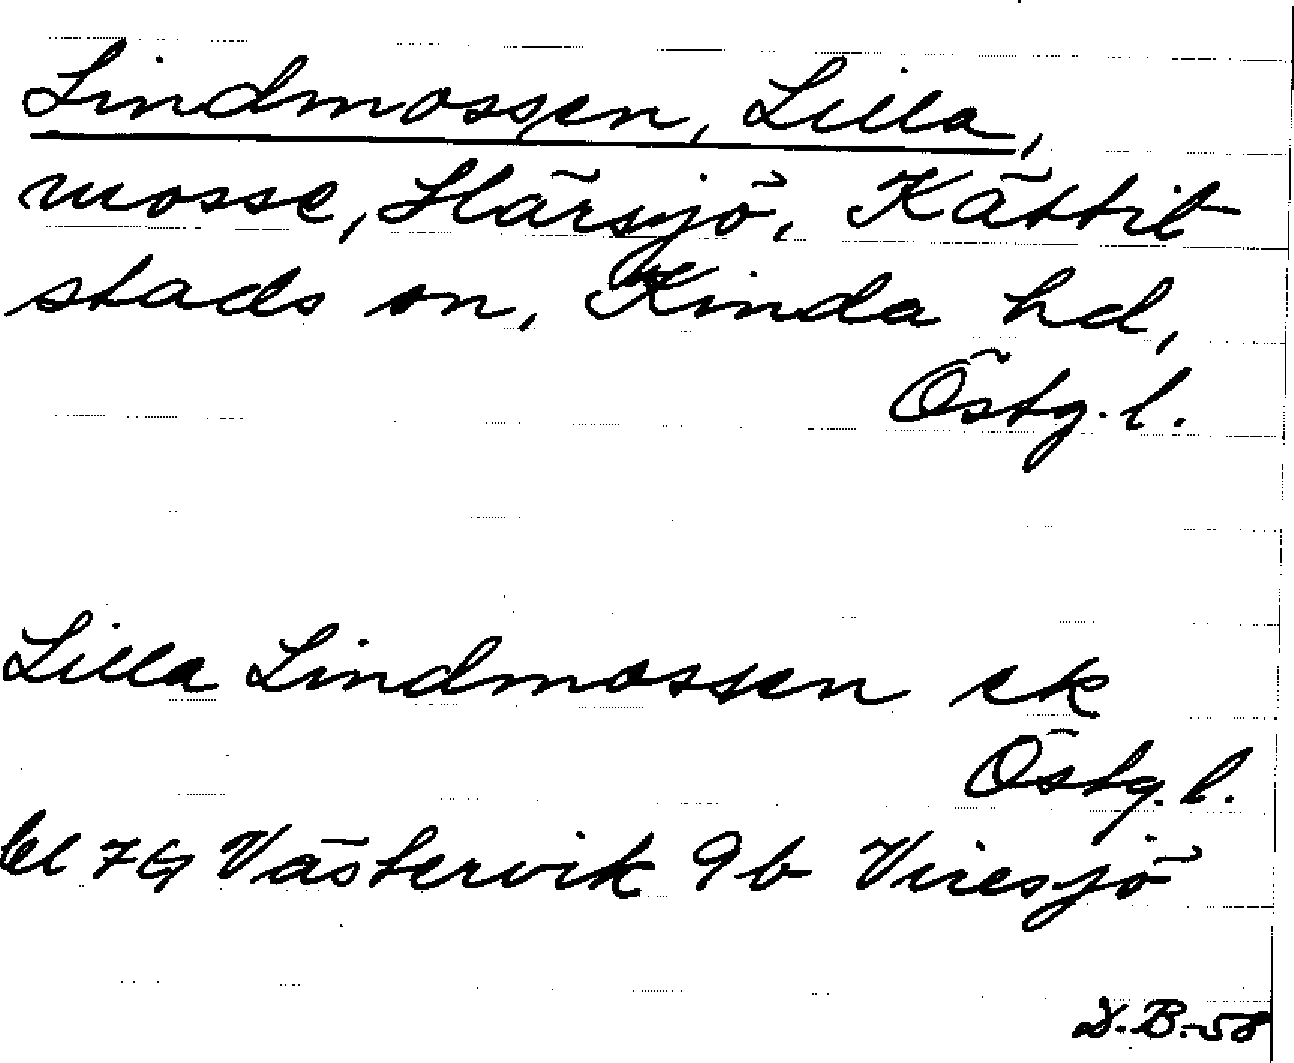 Lindmossen, Lilla,
mosse, Härsjö, Kättil
stads sn, Kinda hd,
Östg. l.
Lilla Lindmossen ek
Östg. l.
bl 7G Västervik 9b Viresjö
D.B.-58